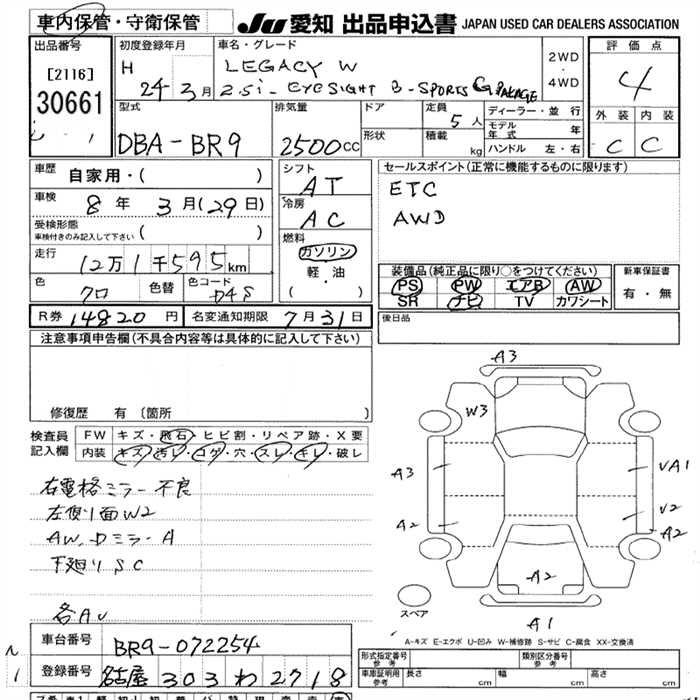 車内保管・守衛保管 JU 愛知 出品申込書 JAPAN USED CAR DEALERS ASSOCIATION
出品番号 初度登録年月 車名・グレード 評価点
[2116] H 24年3月 LEGACY W 2WD・4WD 4
30661 2.5i - EYESIGHT B-SPORTS G PAKAGE
型式 排気量 ドア 定員 ディーラー・並行 外装 内装
DBA-BR9 2500cc 形状 5人 モデル年式 年 C C
積載 kg ハンドル 左・右
車歴 自家用・( ) シフト AT セールスポイント(正常に機能するものに限ります)
車検 8年3月(29日) 冷房 AC ETC
受検形態 ( ) 燃料 AWD
車検付きのみ記入して下さい
ガソリン
軽・油
( ・ )
走行 12万1千595km 装備品(純正品に限り○をつけてください) 新車保証書
色 クロ 色替 色コード D4S PS PW エアB AW 有・無
SR ナビ TV カワシート
R券 14820円 名変通知期限 7月31日 後日品
注意事項申告欄(不具合内容等は具体的に記入して下さい)
修復歴 有 〔箇所
検査員記入欄 FW キズ・飛石・ヒビ割・リペア跡・X要
内装 キズ・汚レ・コゲ・穴・スレ・キレ・破レ
右電格ミラー不良
左側面W2
AW, Dミラー A
下廻り SC
各AU
A3
W3
A3 UA1
A2 U2
A2
A2
スペア A1
A-キズ E-エクボ U-凹み W-補修跡 S-サビ C-腐食 XX-交換済
車台番号 BR9-072254 形式指定番号 参考 類別区分番号 参考
登録番号 名古屋 303 わ 2718 車庫証明用 参考 長さ cm 幅 cm 高さ cm